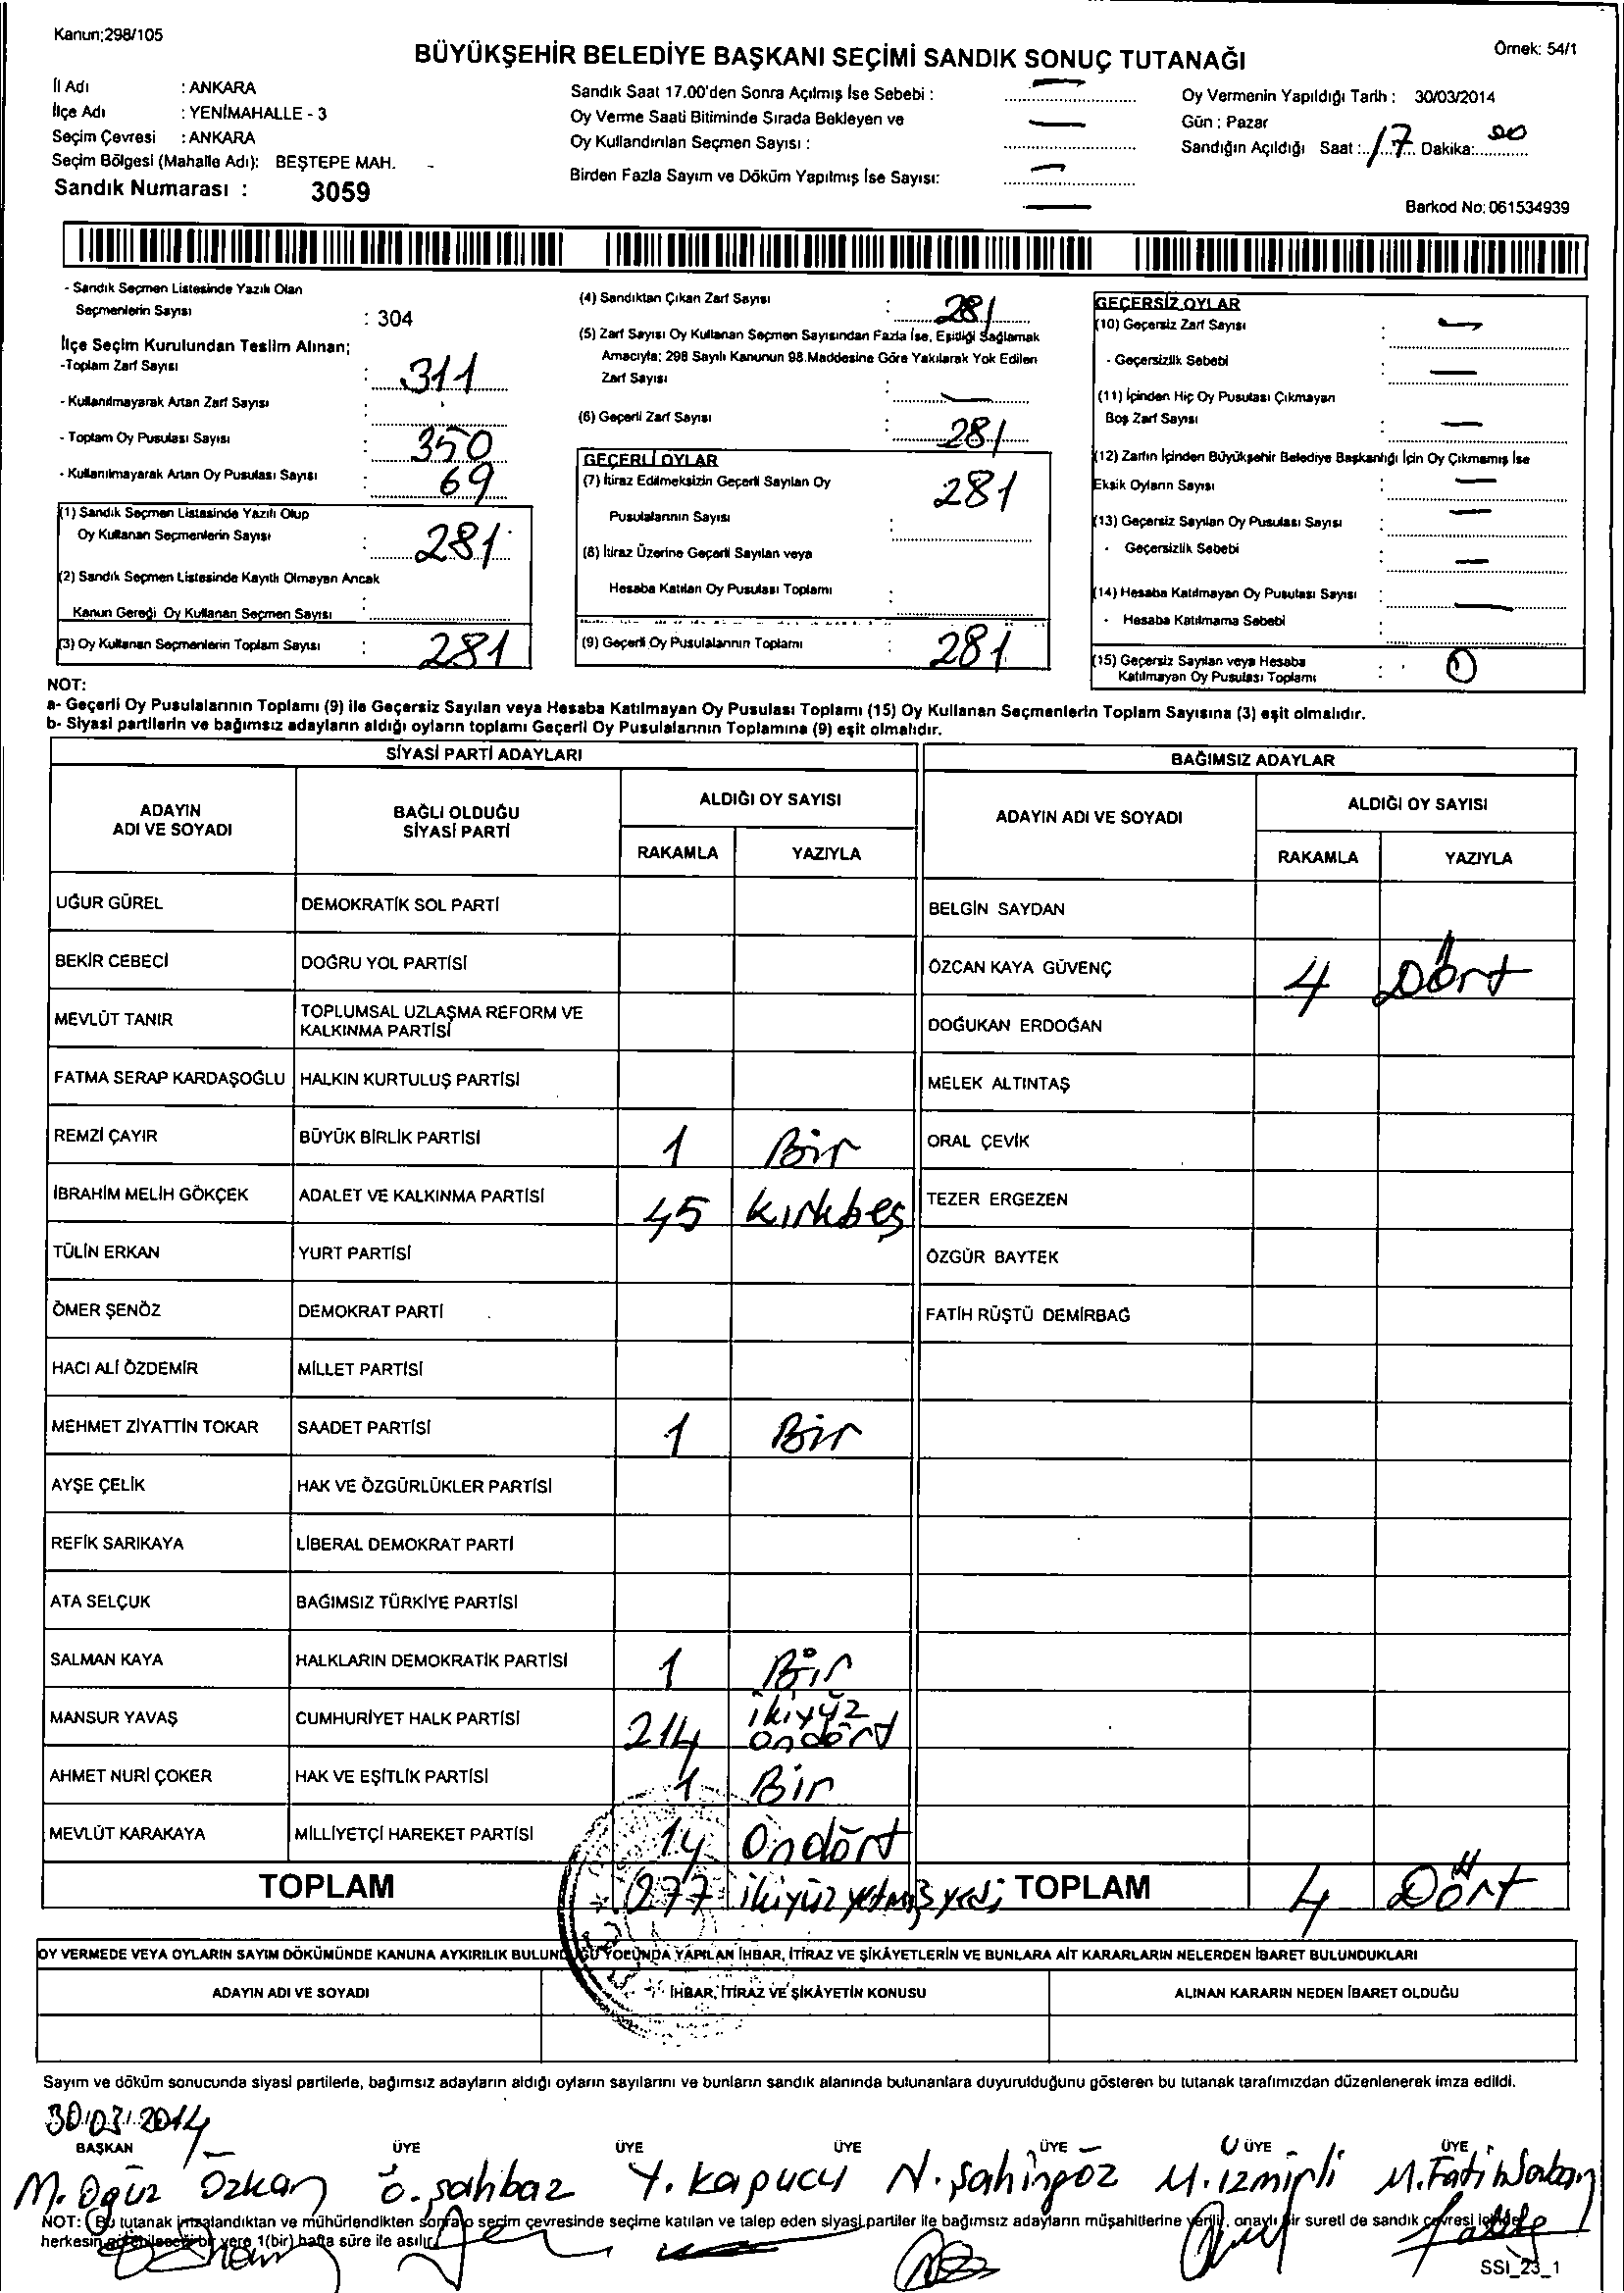 Kanun;298/105
BÜYÜKŞEHİR BELEDİYE BAŞKANI SEÇİMİ SANDIK SONUÇ TUTANAĞI
Örnek: 54/1
İl Adı : ANKARA
İlçe Adı : YENİMAHALLE - 3
Seçim Çevresi : ANKARA
Seçim Bölgesi (Mahalle Adı): BEŞTEPE MAH. -
Sandık Numarası : 3059
Sandık Saat 17.00'den Sonra Açılmış İse Sebebi : —
Oy Verme Saati Bitiminde Sırada Bekleyen ve
Oy Kullandırılan Seçmen Sayısı : —
Birden Fazla Sayım ve Döküm Yapılmış İse Sayısı: —
Oy Vermenin Yapıldığı Tarih : 30/03/2014
Gün : Pazar
Sandığın Açıldığı Saat : 17 Dakika: 00
Barkod No: 061534939
- Sandık Seçmen Listesinde Yazılı Olan
Seçmenlerin Sayısı : 304
İlçe Seçim Kurulundan Teslim Alınan;
-Toplam Zarf Sayısı : 311
- Kullanılmayarak Artan Zarf Sayısı :
- Toplam Oy Pusulası Sayısı : 350
- Kullanılmayarak Artan Oy Pusulası Sayısı : 69
(1) Sandık Seçmen Listesinde Yazılı Olup
Oy Kullanan Seçmenlerin Sayısı : 281
(2) Sandık Seçmen Listesinde Kayıtlı Olmayan Ancak
Kanun Gereği Oy Kullanan Seçmen Sayısı :
(3) Oy Kullanan Seçmenlerin Toplam Sayısı : 281
(4) Sandıktan Çıkan Zarf Sayısı : 281
(5) Zarf Sayısı Oy Kullanan Seçmen Sayısından Fazla İse, Eşitliği Sağlamak
Amacıyla; 298 Sayılı Kanunun 98.Maddesine Göre Yakılarak Yok Edilen
Zarf Sayısı : —
(6) Geçerli Zarf Sayısı : 281
GEÇERLİ OYLAR
(7) İtiraz Edilmeksizin Geçerli Sayılan Oy
Pusulalarının Sayısı : 281
(8) İtiraz Üzerine Geçerli Sayılan veya
Hesaba Katılan Oy Pusulası Toplamı :
(9) Geçerli Oy Pusulalarının Toplamı : 281
GEÇERSİZ OYLAR
(10) Geçersiz Zarf Sayısı : —
- Geçersizlik Sebebi : —
(11) İçinden Hiç Oy Pusulası Çıkmayan
Boş Zarf Sayısı : —
(12) Zarfın İçinden Büyükşehir Belediye Başkanlığı İçin Oy Çıkmamış İse
Eksik Oyların Sayısı : —
(13) Geçersiz Sayılan Oy Pusulası Sayısı : —
- Geçersizlik Sebebi : —
(14) Hesaba Katılmayan Oy Pusulası Sayısı : —
- Hesaba Katılmama Sebebi :
(15) Geçersiz Sayılan veya Hesaba
Katılmayan Oy Pusulası Toplamı : 0
NOT:
a- Geçerli Oy Pusulalarının Toplamı (9) ile Geçersiz Sayılan veya Hesaba Katılmayan Oy Pusulası Toplamı (15) Oy Kullanan Seçmenlerin Toplam Sayısına (3) eşit olmalıdır.
b- Siyasi partilerin ve bağımsız adayların aldığı oyların toplamı Geçerli Oy Pusulalarının Toplamına (9) eşit olmalıdır.
SİYASİ PARTİ ADAYLARI
ADAYIN ADI VE SOYADI BAĞLI OLDUĞU SİYASİ PARTİ ALDIĞI OY SAYISI
RAKAMLA YAZIYLA
UĞUR GÜREL DEMOKRATİK SOL PARTİ
BEKİR CEBECİ DOĞRU YOL PARTİSİ
MEVLÜT TANIR TOPLUMSAL UZLAŞMA REFORM VE KALKINMA PARTİSİ
FATMA SERAP KARDAŞOĞLU HALKIN KURTULUŞ PARTİSİ
REMZİ ÇAYIR BÜYÜK BİRLİK PARTİSİ 1 Bir
İBRAHİM MELİH GÖKÇEK ADALET VE KALKINMA PARTİSİ 45 Kırkbeş
TÜLİN ERKAN YURT PARTİSİ
ÖMER ŞENÖZ DEMOKRAT PARTİ
HACI ALİ ÖZDEMİR MİLLET PARTİSİ
MEHMET ZİYATTİN TOKAR SAADET PARTİSİ 1 Bir
AYŞE ÇELİK HAK VE ÖZGÜRLÜKLER PARTİSİ
REFİK SARIKAYA LİBERAL DEMOKRAT PARTİ
ATA SELÇUK BAĞIMSIZ TÜRKİYE PARTİSİ
SALMAN KAYA HALKLARIN DEMOKRATİK PARTİSİ 1 Bir
MANSUR YAVAŞ CUMHURİYET HALK PARTİSİ 214 ikiyüz ondört
AHMET NURİ ÇOKER HAK VE EŞİTLİK PARTİSİ 1 Bir
MEVLÜT KARAKAYA MİLLİYETÇİ HAREKET PARTİSİ 14 Ondört
TOPLAM 277 ikiyüzyetmişyedi
BAĞIMSIZ ADAYLAR
ADAYIN ADI VE SOYADI ALDIĞI OY SAYISI
RAKAMLA YAZIYLA
BELGİN SAYDAN
ÖZCAN KAYA GÜVENÇ 4 Dört
DOĞUKAN ERDOĞAN
MELEK ALTINTAŞ
ORAL ÇEVİK
TEZER ERGEZEN
ÖZGÜR BAYTEK
FATİH RÜŞTÜ DEMİRBAĞ
TOPLAM 4 Dört
OY VERMEDE VEYA OYLARIN SAYIM DÖKÜMÜNDE KANUNA AYKIRILIK BULUNDUĞU YOLUNDA YAPILAN İHBAR, İTİRAZ VE ŞİKÂYETLERİN VE BUNLARA AİT KARARLARIN NELERDEN İBARET BULUNDUKLARI
ADAYIN ADI VE SOYADI İHBAR, İTİRAZ VE ŞİKÂYETİN KONUSU ALINAN KARARIN NEDEN İBARET OLDUĞU
Sayım ve döküm sonucunda siyasi partilerle, bağımsız adayların aldığı oyların sayılarını ve bunların sandık alanında bulunanlara duyurulduğunu gösteren bu tutanak tarafımızdan düzenlenerek imza edildi.
30/03/2014
BAŞKAN ÜYE ÜYE ÜYE ÜYE ÜYE ÜYE
M. Oğuz Özkan Ö. Şahbaz Y. Kapucu N. Şahingöz M. İzmirli M. Fatih
NOT: Bu tutanak imzalandıktan ve mühürlendikten sonra o seçim çevresinde seçime katılan ve talep eden siyasi partiler ile bağımsız adayların müşahitlerine verilir, onaylı bir sureti de sandık çevresi içinde
herkesin görebileceği bir yere 1(bir) hafta süre ile asılır.
SSİ_23_1